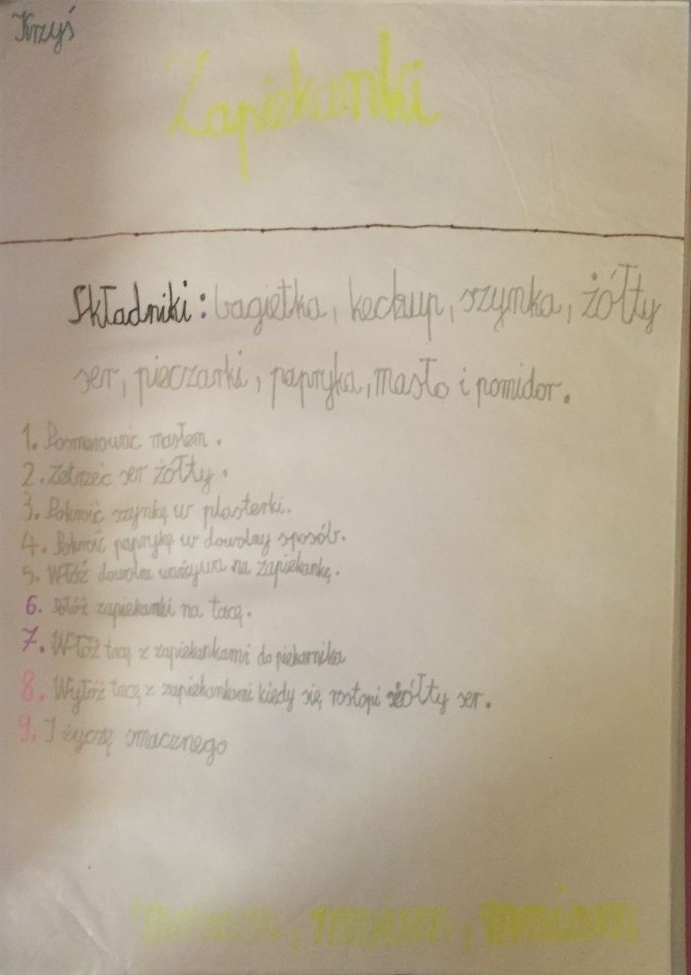 Krzyś
Zapiekanki
Składniki: bagietka, keckup, szynka, żółty
ser, pieczarki, papryka, masło i pomidor.
1. Posmarować masłem.
2. Zetrzeć ser żółty.
3. Pokroić szynkę w plasterki.
4. Pokroić paprykę w dowolny sposób.
5. Włóż dowolne warzywa na zapiekankę.
6. Włóż zapiekanki na tacę.
7. Włóż tacę z zapiekankami do piekarnika
8. Wyłóż tacę z zapiekankami kiedy się rostopi żółty ser.
9. I życzę smacznego
mniam, mniam, mniam